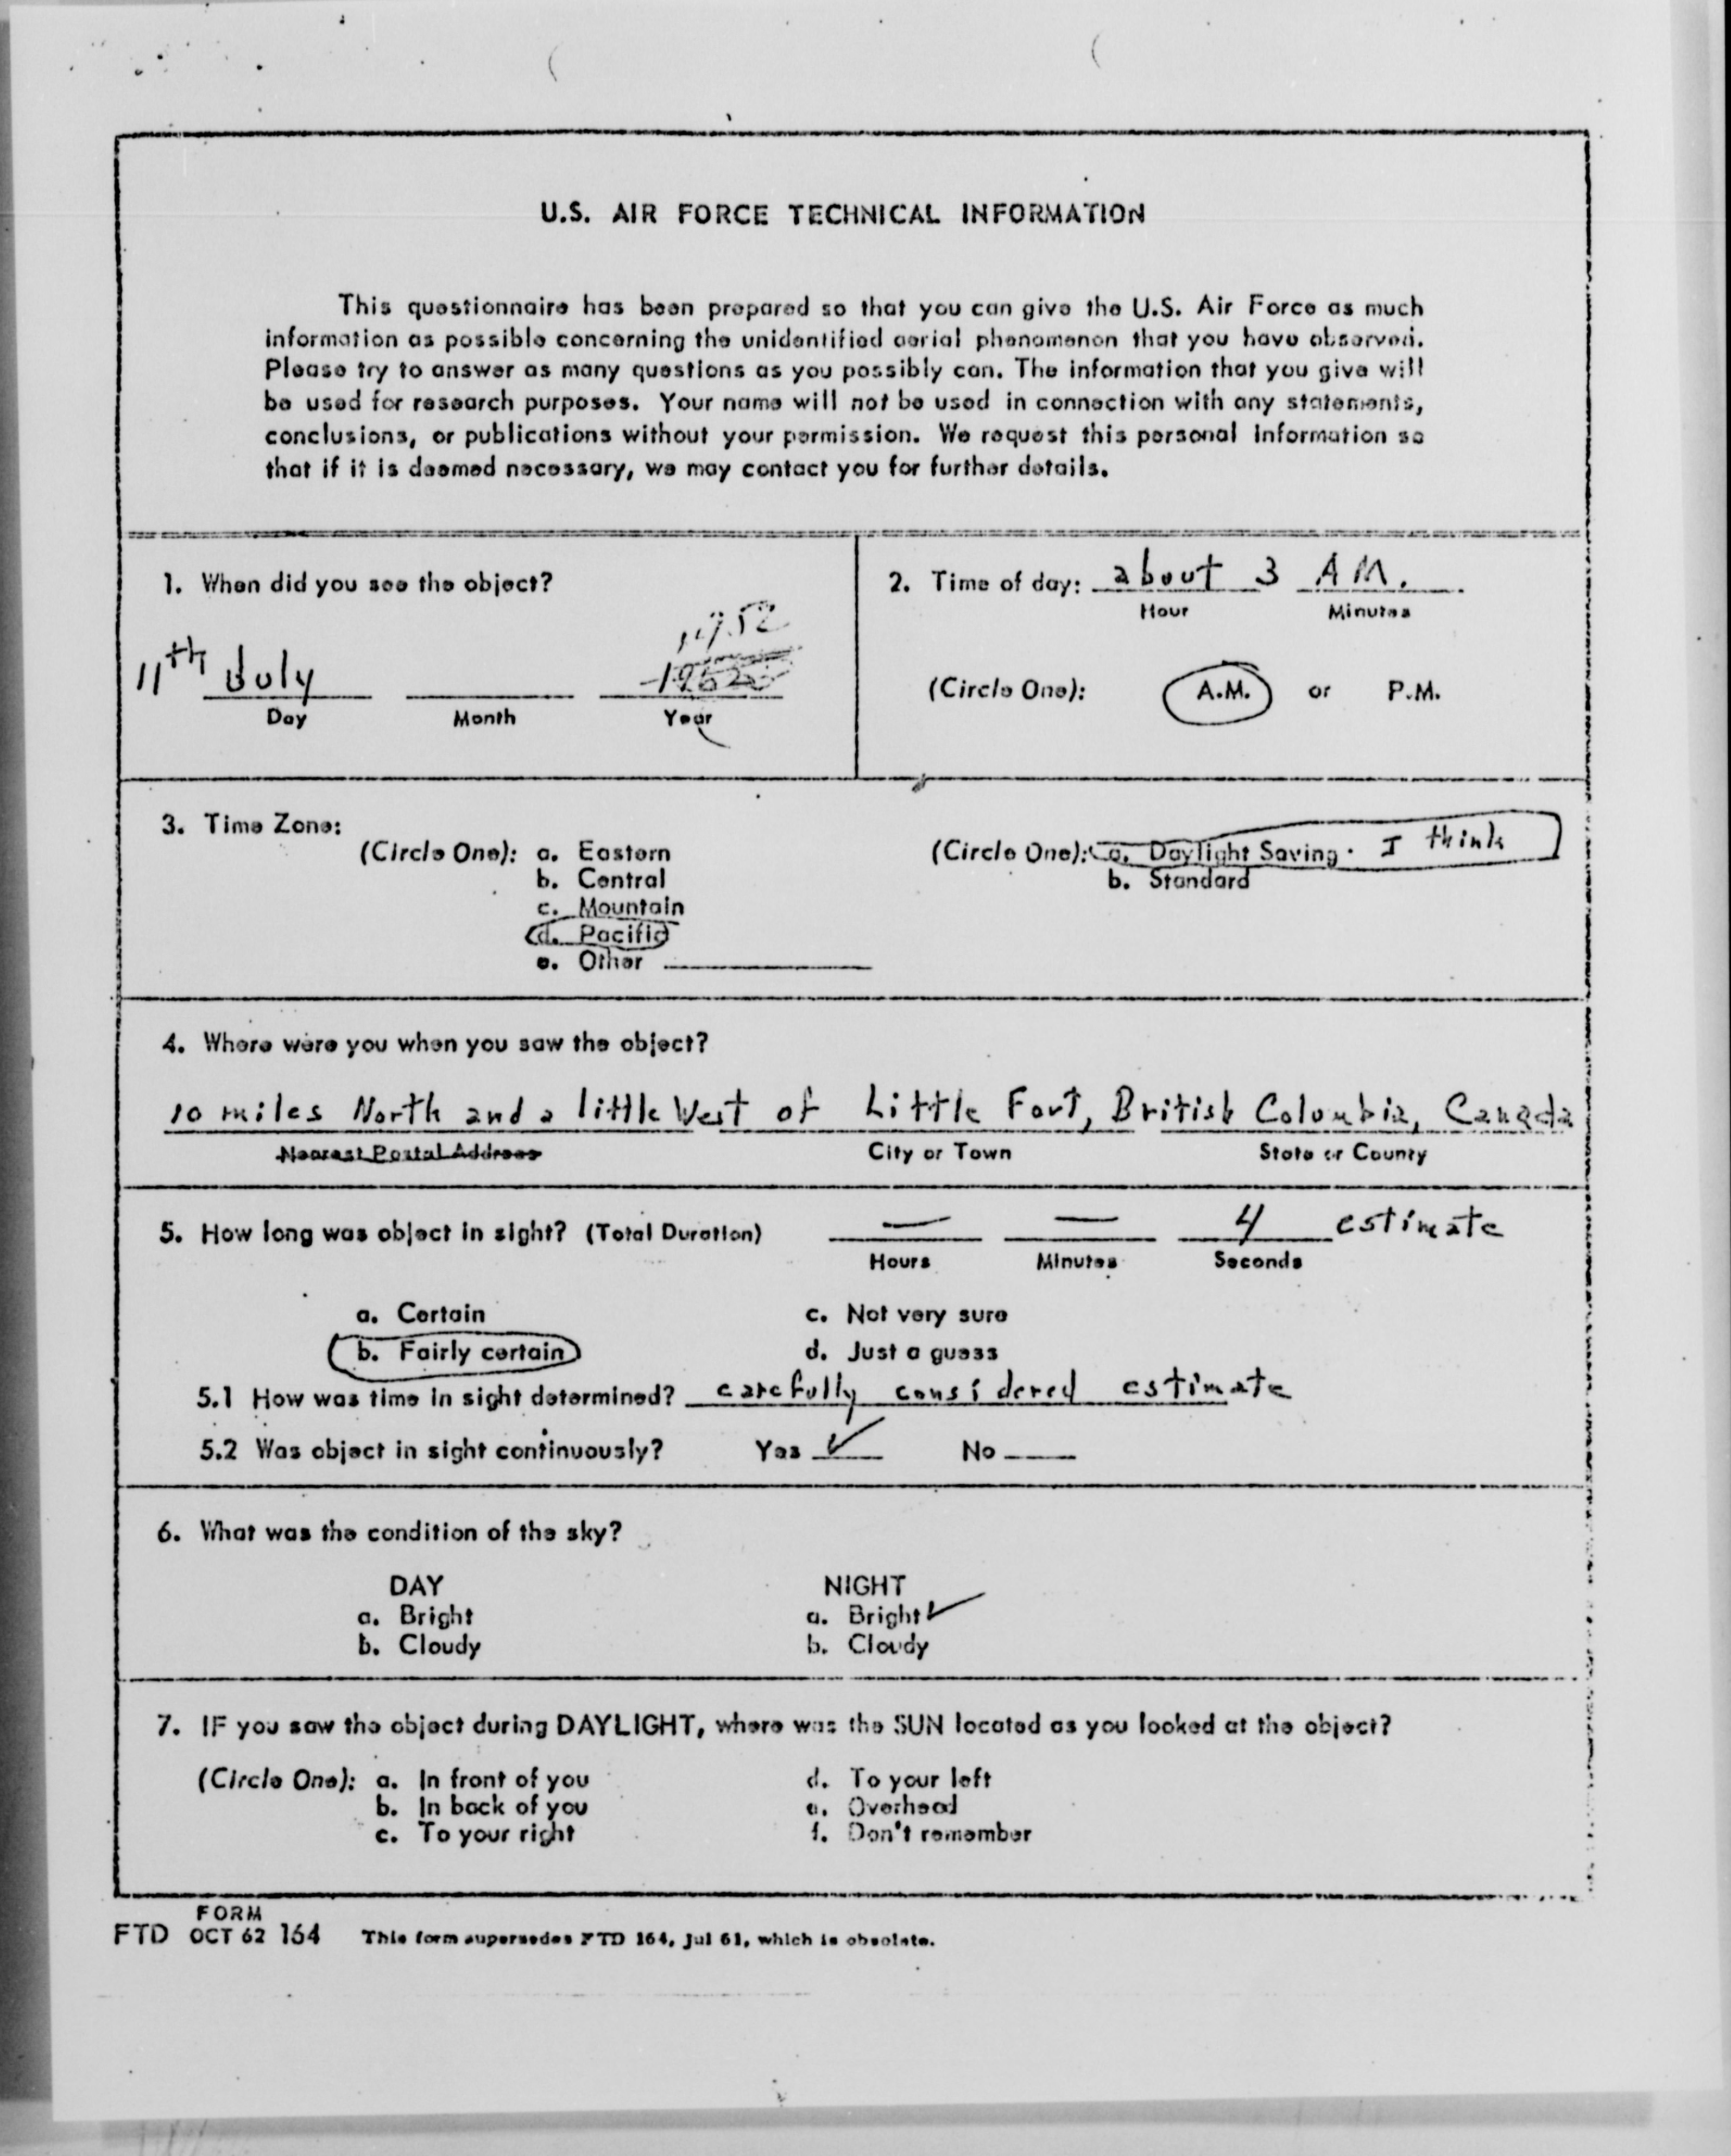 U.S. AIR FORCE TECHNICAL INFORMATION
This questionnaire has been prepared so that you can give the U.S. Air Force as much
information as possible concerning the unidentified aerial phenomenon that you have observed.
Please try to answer as many questions as you possibly can. The information that you give will
be used for research purposes. Your name will not be used in connection with any statements,
conclusions, or publications without your permission. We request this personal information so
that if it is deemed necessary, we may contact you for further details.
1. When did you see the object?
1952
11th July
Day Month Year
2. Time of day: about 3 A.M.
Hour Minutes
(Circle One): A.M. or P.M.
3. Time Zone:
(Circle One): a. Eastern
b. Central
c. Mountain
d. Pacific
e. Other
(Circle One): a. Daylight Saving. I think
b. Standard
4. Where were you when you saw the object?
10 miles North and a little West of Little Fort, British Columbia, Canada
Nearest Postal Address City or Town State or County
5. How long was object in sight? (Total Duration) — — 4 estimate
Hours Minutes Seconds
a. Certain c. Not very sure
b. Fairly certain d. Just a guess
5.1 How was time in sight determined? carefully considered estimate
5.2 Was object in sight continuously? Yes ✓ No
6. What was the condition of the sky?
DAY NIGHT
a. Bright a. Bright ✓
b. Cloudy b. Cloudy
7. IF you saw the object during DAYLIGHT, where was the SUN located as you looked at the object?
(Circle One): a. In front of you d. To your left
b. In back of you e. Overhead
c. To your right f. Don't remember
FTD FORM OCT 62 164 This form supersedes FTD 164, Jul 61, which is obsolete.